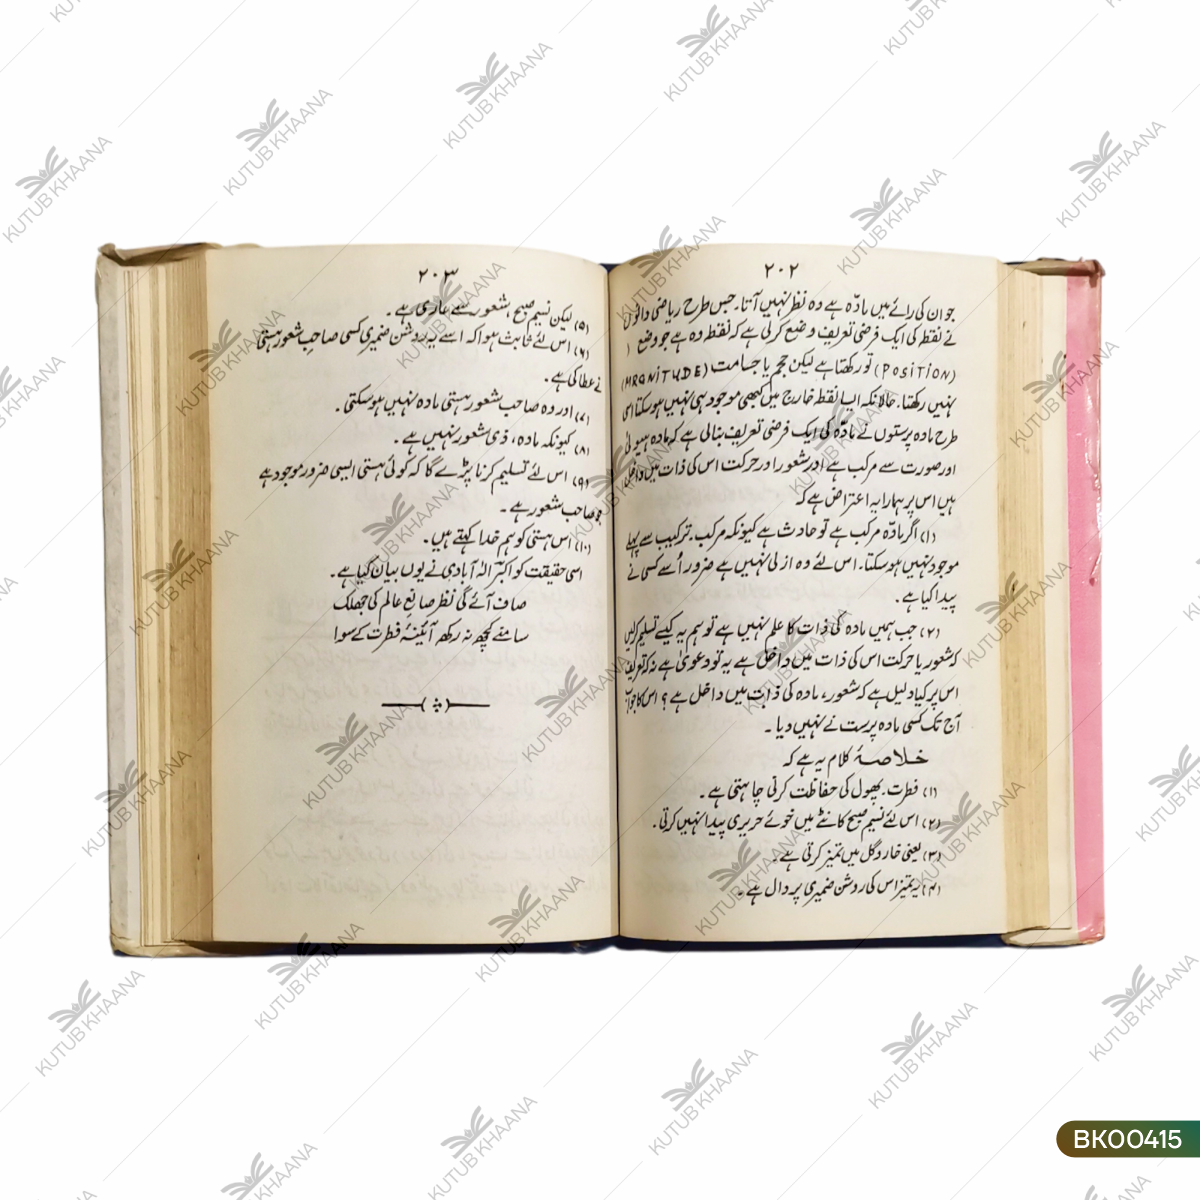 ۲۰۲
جو ان کی رائے میں مادّہ ہے وہ نظر نہیں آتا۔ جس طرح ریاضی دانوں
نے نقطہ کی ایک فرضی تعریف وضع کرلی ہے کہ نقطہ وہ ہے جو وضع
(POSITION) تو رکھتا ہے لیکن حجم یا جسامت (MRGNITUDE)
نہیں رکھتا۔ حالانکہ ایسا نقطہ خارج میں کبھی موجود ہی نہیں ہوسکتا اسی
طرح مادہ پرستوں نے مادّہ کی ایک فرضی تعریف بنالی ہے کہ مادہ ہیولیٰ
اور صورت سے مرکب ہے اور شعور اور حرکت اس کی ذات میں داخل
ہیں اس پر ہمارا یہ اعتراض ہے کہ
(۱) اگر مادّہ مرکب ہے تو حادث ہے کیونکہ مرکب۔ ترکیب سے پہلے
موجود نہیں ہوسکتا۔ اس لئے وہ ازلی نہیں ہے ضرور اُسے کسی نے
پیدا کیا ہے۔
(۲) جب ہمیں مادہ کی ذات کا علم نہیں ہے تو ہم یہ کیسے تسلیم کرلیں
کہ شعور یا حرکت اس کی ذات میں داخل ہے یہ تو دعویٰ ہے نہ کہ تعریف
اس پر کیا دلیل ہے کہ شعور، مادہ کی ذات میں داخل ہے؟ اس کا جواب
آج تک کسی مادہ پرست نے نہیں دیا۔
خلاصۂ کلام یہ ہے کہ
(۱) فطرت۔ پھول کی حفاظت کرنی چاہتی ہے۔
(۲) اس لئے نسیم صبح کانٹے میں خوئے حریری پیدا نہیں کرتی۔
(۳) یعنی خار و گل میں تمیز کرتی ہے۔
(۴) یہ تمیز اس کی روشن ضمیری پر دال ہے۔
۲۰۳
(۵) لیکن نسیم صبح، شعور سے عاری ہے۔
(۶) اس لئے ثابت ہوا کہ اسے یہ روشن ضمیری کسی صاحبِ شعور ہستی
نے عطا کی ہے۔
(۷) اور وہ صاحب شعور ہستی مادہ نہیں ہوسکتی۔
(۸) کیونکہ مادہ، ذی شعور نہیں ہے۔
(۹) اس لئے تسلیم کرنا پڑے گا کہ کوئی ہستی ایسی ضرور موجود ہے
جو صاحب شعور ہے۔
(۱۰) اس ہستی کو ہم خدا کہتے ہیں۔
اسی حقیقت کو اکبر الہٰ آبادی نے یوں بیان کیا ہے۔
صاف آئے گی نظر صانعِ عالم کی جھلک
سامنے کچھ نہ رکھ آئینۂ فطرت کے سوا
KUTUB KHAANA
BK00415